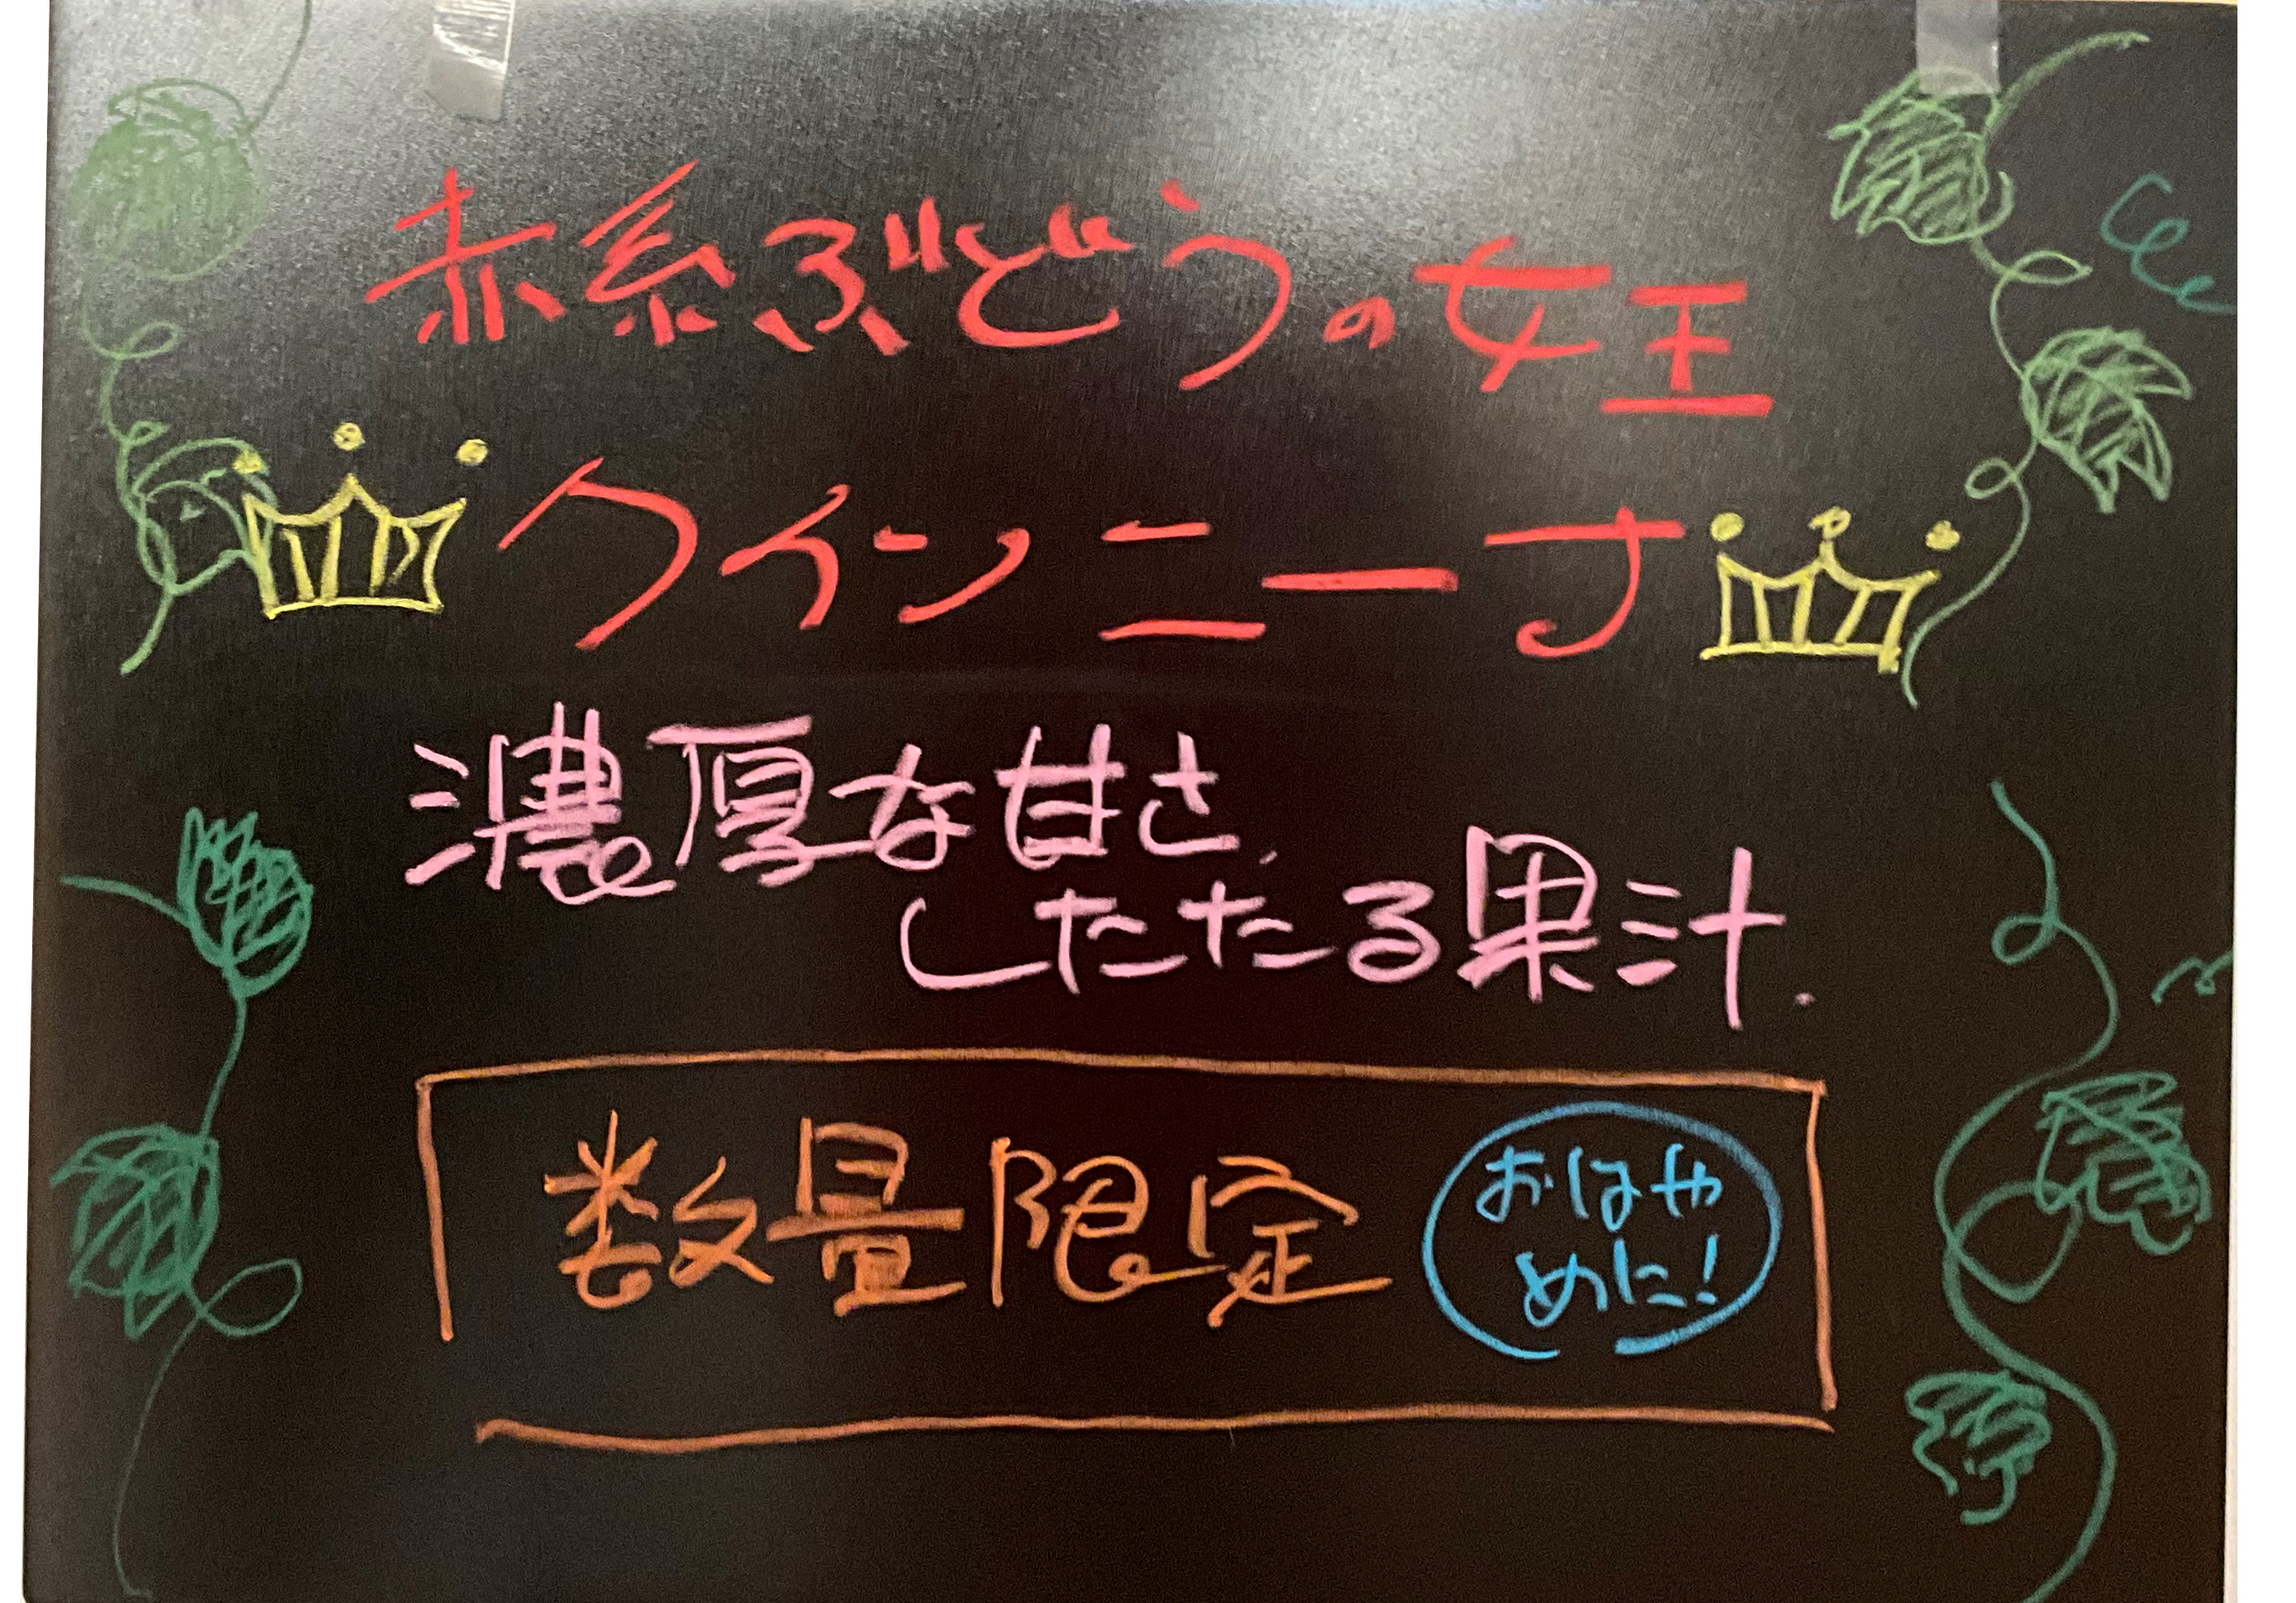 赤系ぶどうの女王
クインニーナ
濃厚な甘さ、
したたる果汁.
数量限定
おはや
めに!